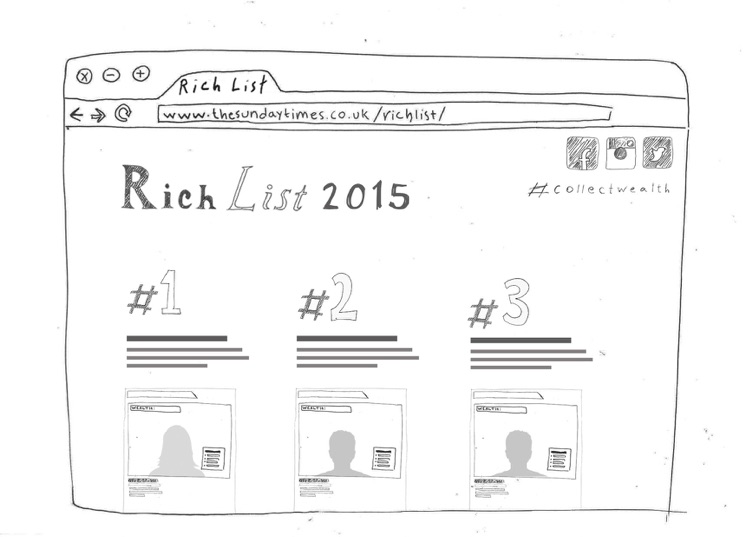 Rich List
www.thesundaytimes.co.uk/richlist/
Rich List 2015
#collectwealth
#1
#2
#3
WEALTH:
WEALTH:
WEALTH: